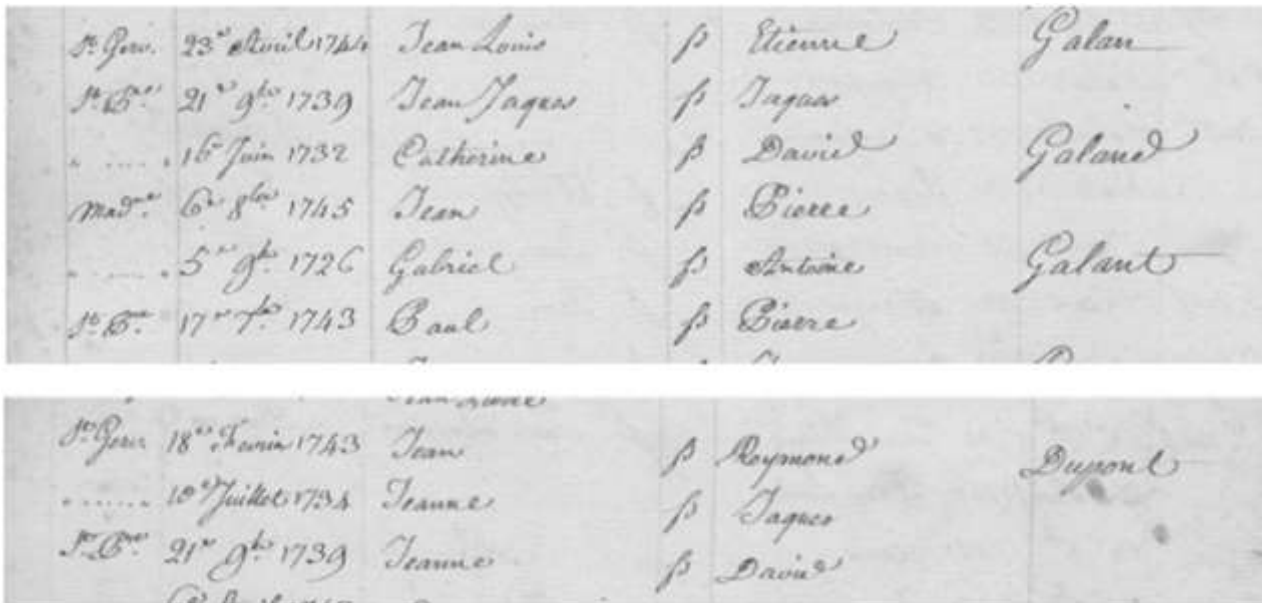 St. Gerv. 23e Avril 1744 Jean Louis fs Etienne Galan
St. Pre. 21e 9bre 1739 Jean Jaques fs Jaques
" .... " 16e Juin 1732 Catherine fs David Galand
Madne. 6e 8bre 1745 Jean fs Pierre
" .... " 5e 9bre 1726 Gabriel fs Antoine Galant
St. Pre. 17e 7bre 1743 Paul fs Pierre
St. Gerv 18e Fevrier 1743 Jean fs Reymond Dupont
" ...... 10e Juillet 1734 Jeanne fs Jaques
St. Pre. 21e 9bre 1739 Jeanne fs David